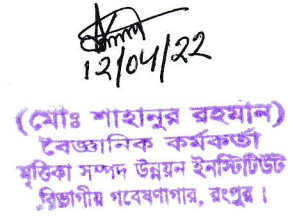 12/04/22
(মোঃ শাহানুর রহমান)
বৈজ্ঞানিক কর্মকর্তা
মৃত্তিকা সম্পদ উন্নয়ন ইনস্টিটিউট
বিভাগীয় গবেষণাগার, রংপুর।